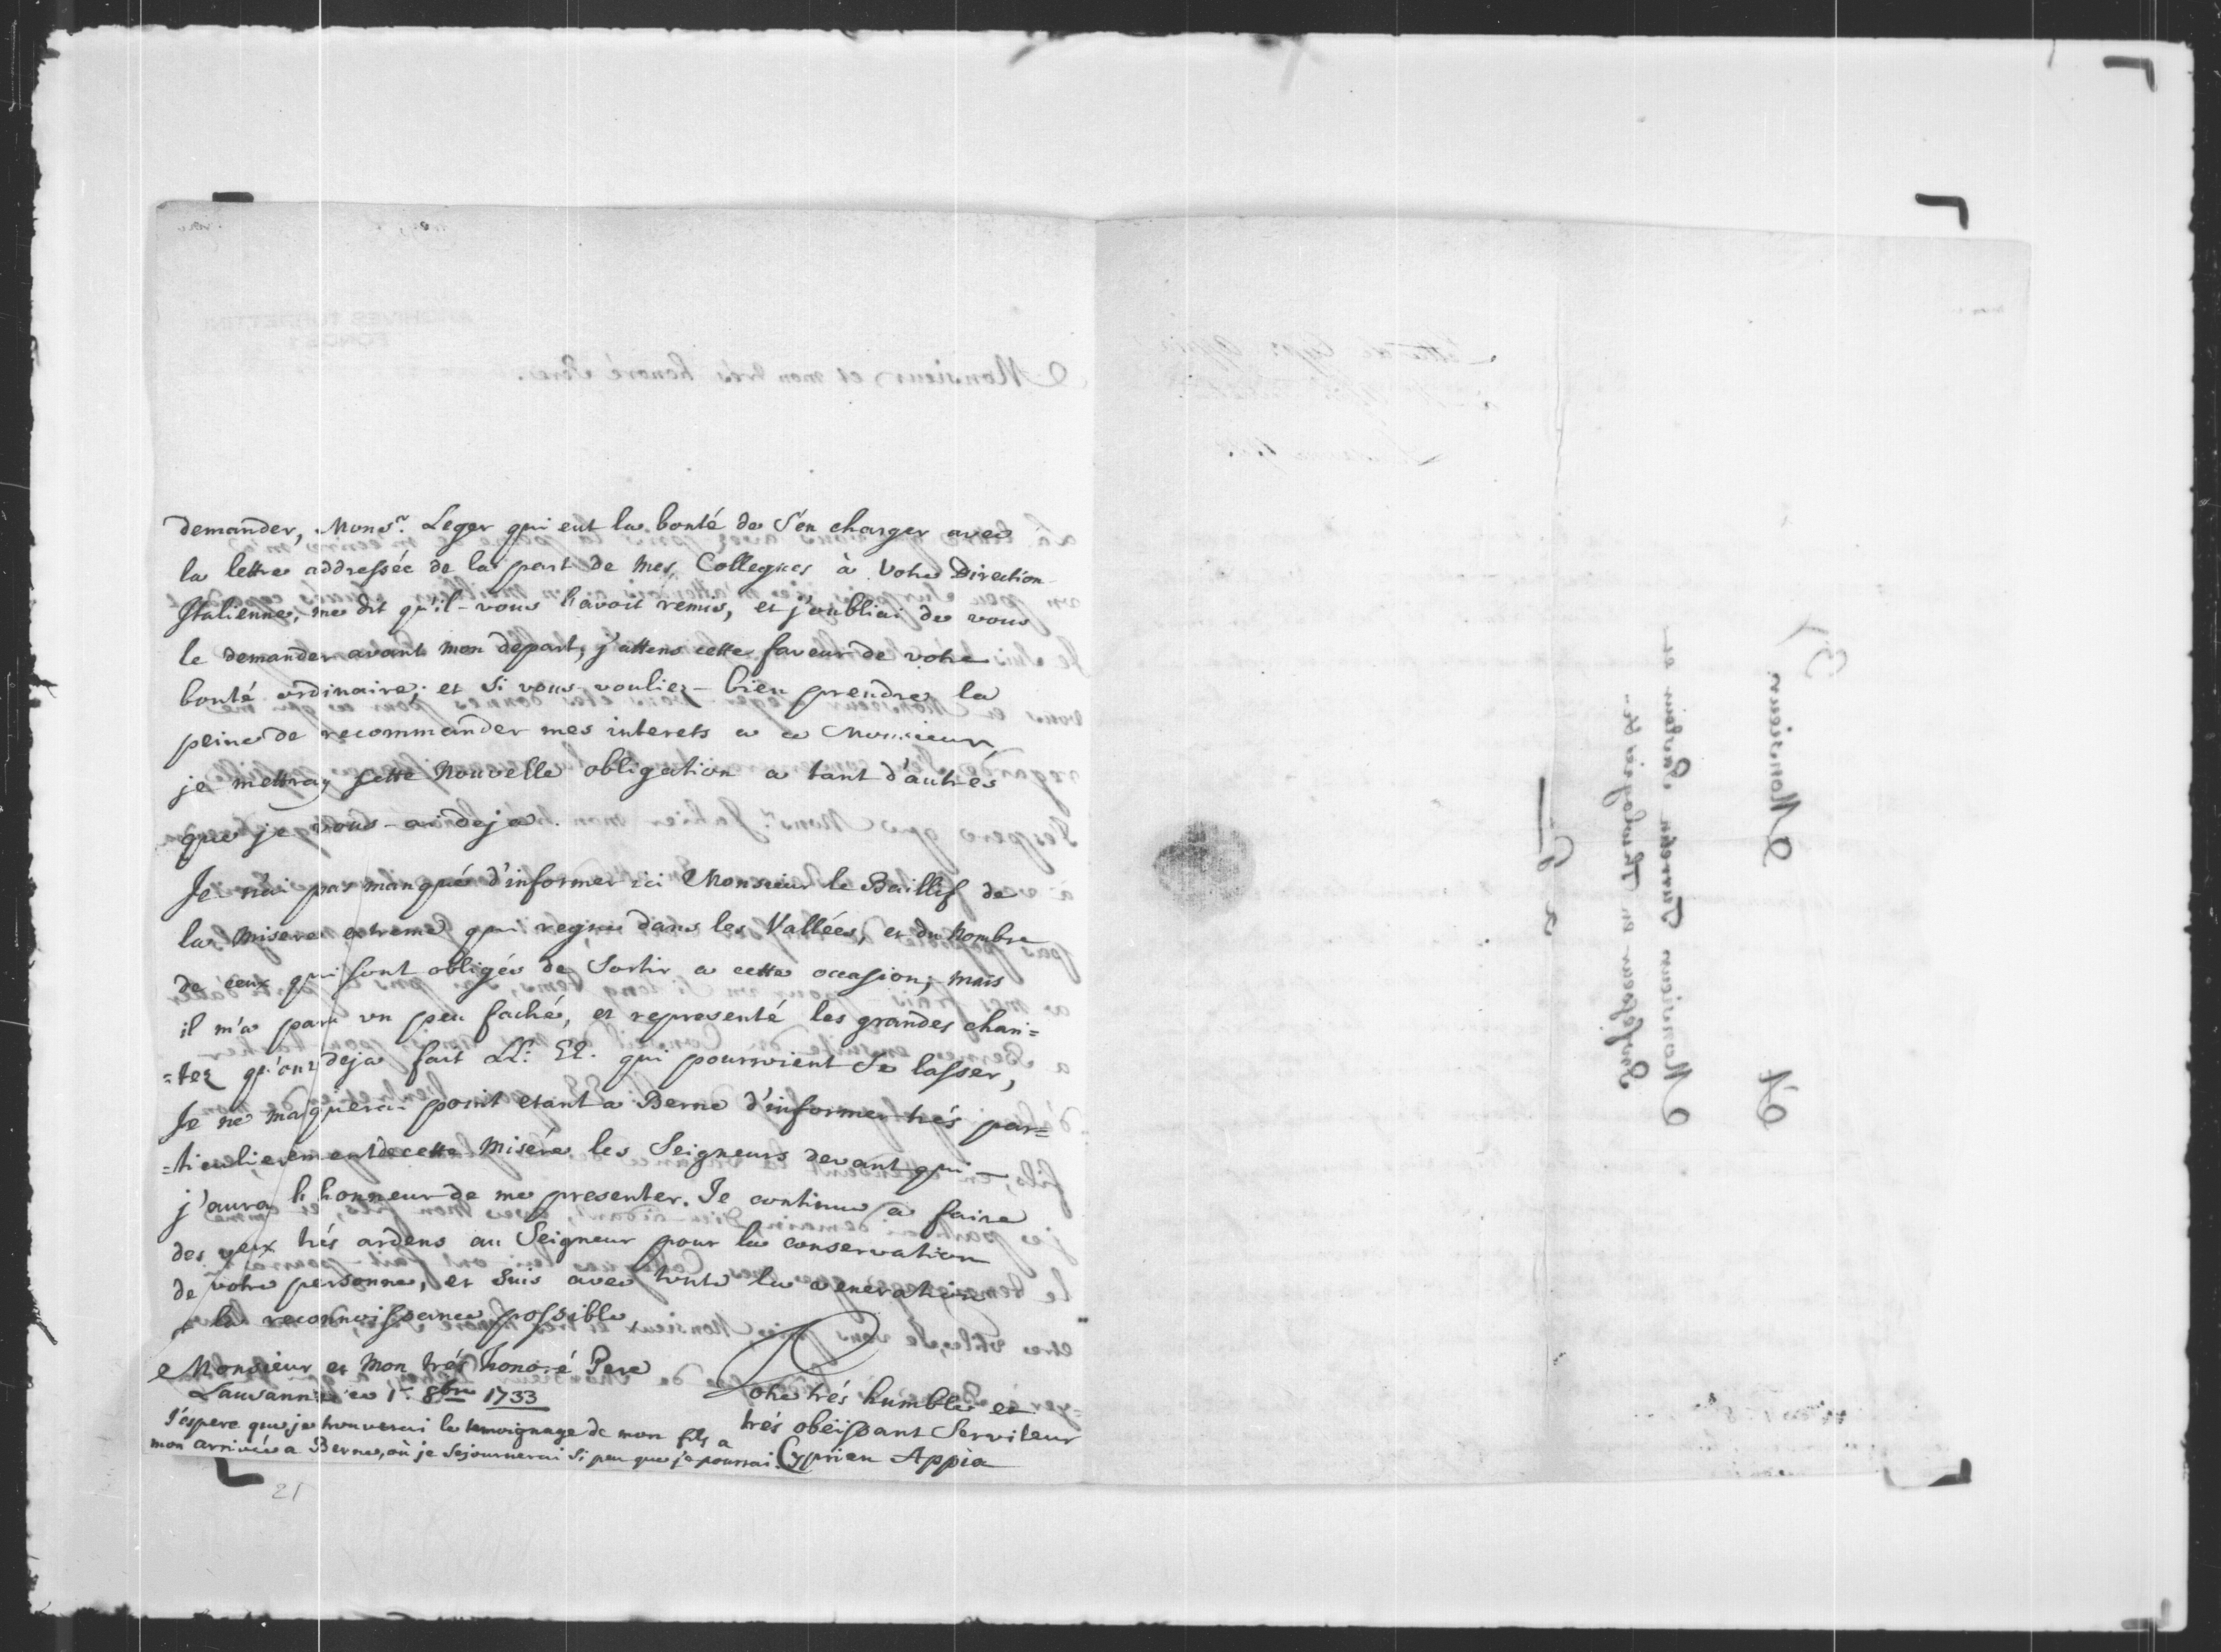 demander, Monsr. Leger qui eut la bonté de s'en charger avec
la lettre addressée de la part de mes Collegues à votre Direction
Italienne, me dit qu'il vous l'avoit remis, et j'oubliai de vous
le demander avant mon depart, j'attens cette faveur de votre
bonté ordinaire; et si vous vouliez-bien prendre la
peine de recommander mes interets a ce Monsieur,
je mettray cette Nouvelle obligation a tant d'autrés
que je vous-ai deja.
Je n'ai pas manqué d'informer ici Monsieur le Baillif de
la misere extreme qui regne dans les Vallées, et du Nombre
de ceux qui sont obligés de sortir a cette occasion; mais
il m'a paru un peu faché, et representé les grandes chari=
=tez qu'ont deja fait LL: EE. qui pourroient se lasser,
Je ne maquerai point etant a Berne d'informer trés par=
=ticulierement de cette Misére les Seigneurs devant qui
j'auray l'honneur de me presenter. Je continue a faire
des veux trés ardens au Seigneur pour la conservation
de votre personne, et suis avec toute la veneration
et la reconnoissance possible
Monsieur et Mon trés honoré Pere
Lausanne ce 1r. 8bre 1733
Votre trés humble et
trés obeissant Serviteur
Cyprien Appia
J'espere que je trouverai le temoignage de mon fils a
mon arrivée a Berne, où je sejournerai si peu que je pourrai
21
A Monsieur
Monsieur Turretin Pasteur et
Professeur en Theologie &c.
a G